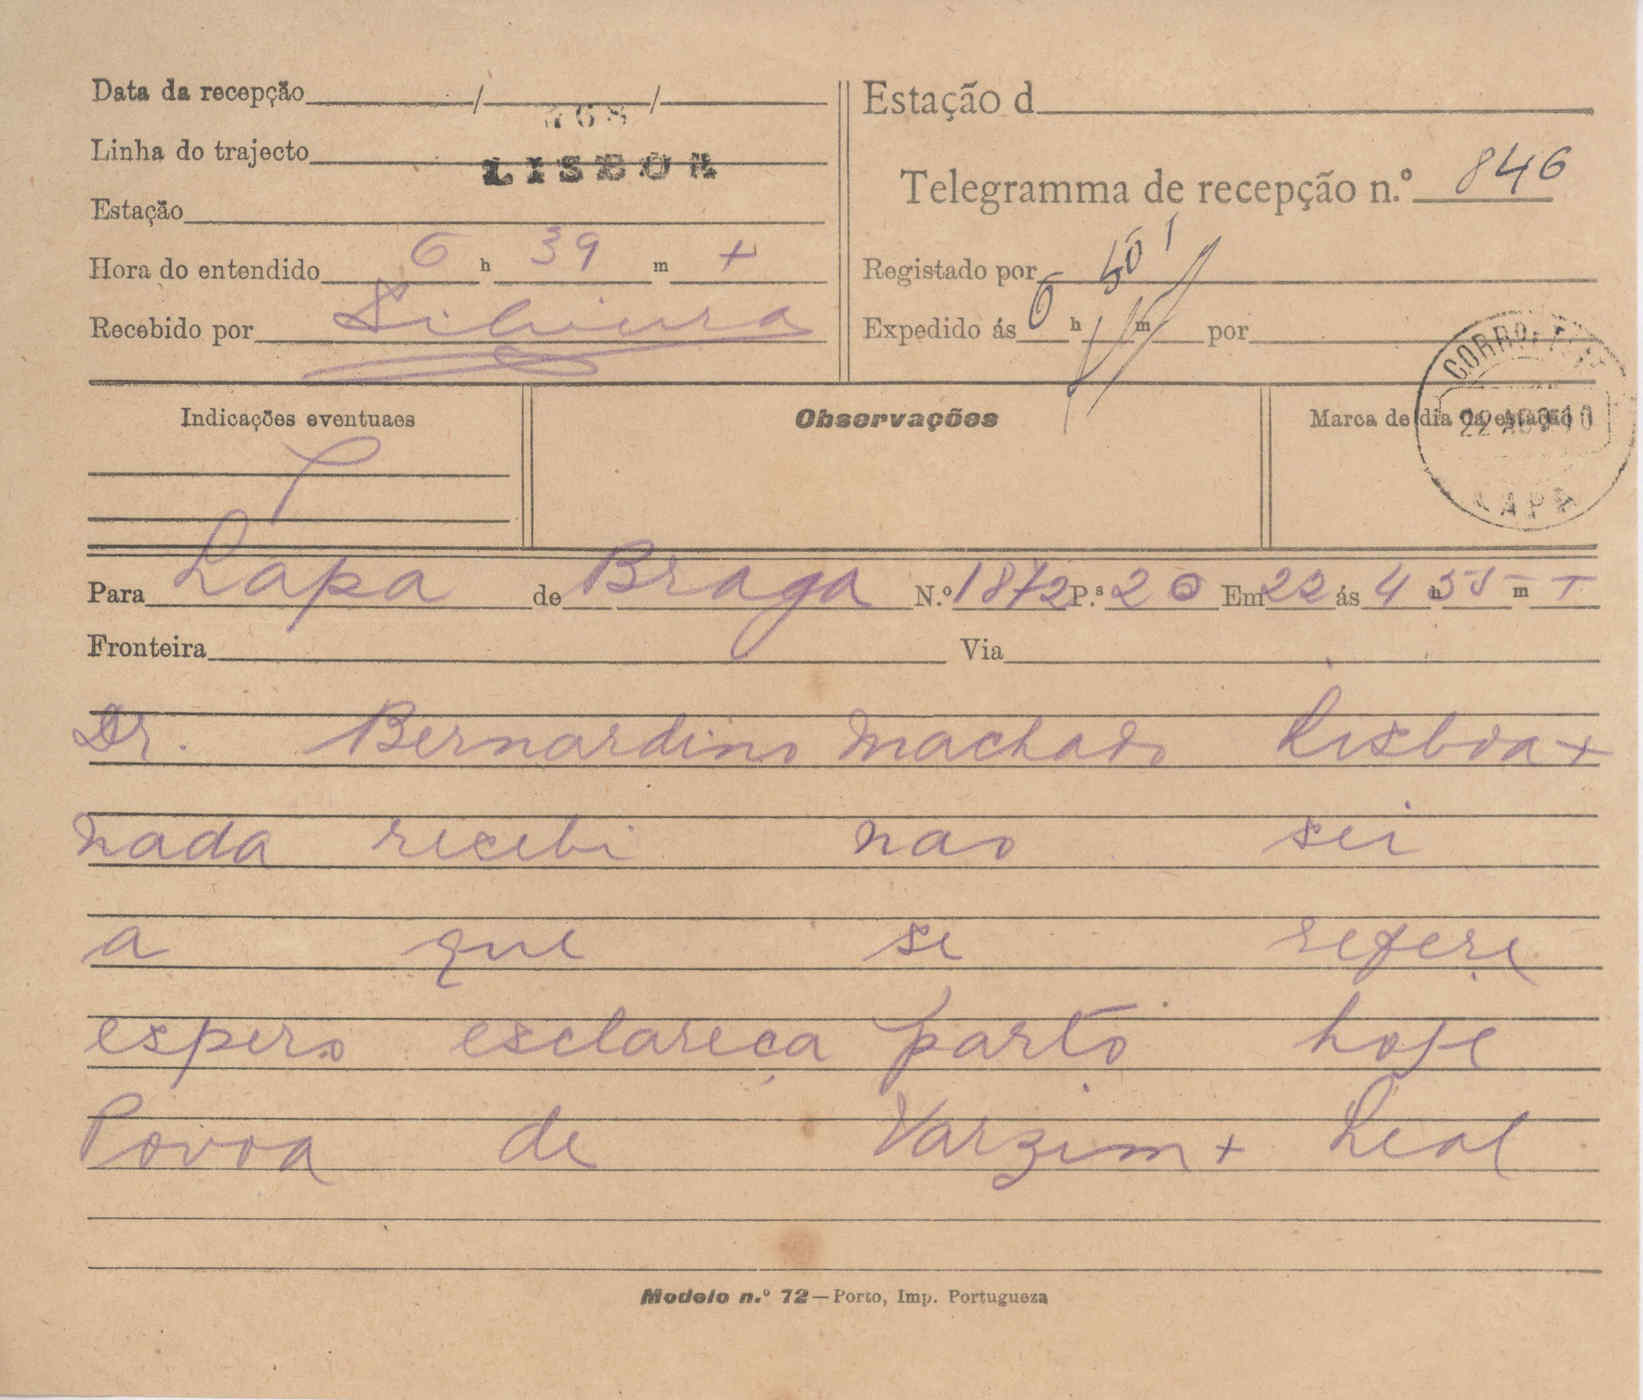 Data da recepção / /
768
Linha do trajecto
LISBOA
Estação
Hora do entendido 6 h 39 m +
Recebido por Silveira
Estação d
Telegramma de recepção n.º 846
Registado por
Expedido ás 6 h 50 m por
Indicações eventuaes
Observações
Marca de dia da estação
CORRO.
22 AGO 10
LAPA
Para Lapa de Braga N.º 1872 P.ˢ 20 Em 22 ás 4 h 55 m T
Fronteira Via
Dr. Bernardino Machado Lisboa +
nada recebi nao sei
a que se refere
espero esclareça parto hoje
Povoa de Varzim + Leal
Modelo n.º 72—Porto, Imp. Portugueza